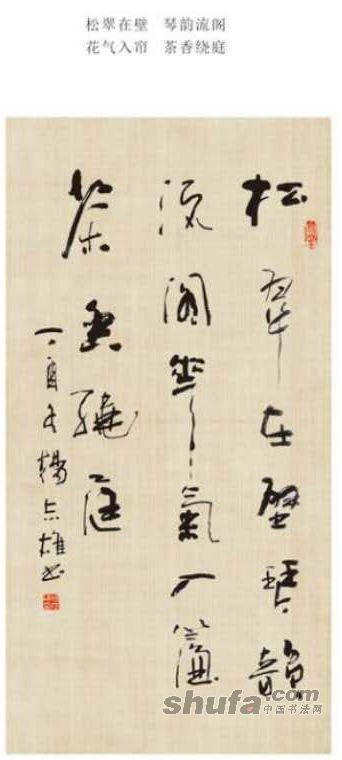 松翠在壁　琴韵流阁
花气入帘　茶香绕庭
松翠在壁琴韻
流閣華氣入簾
茶香繞庭
丁酉冬楊志雄书
shufa.com
中国书法网